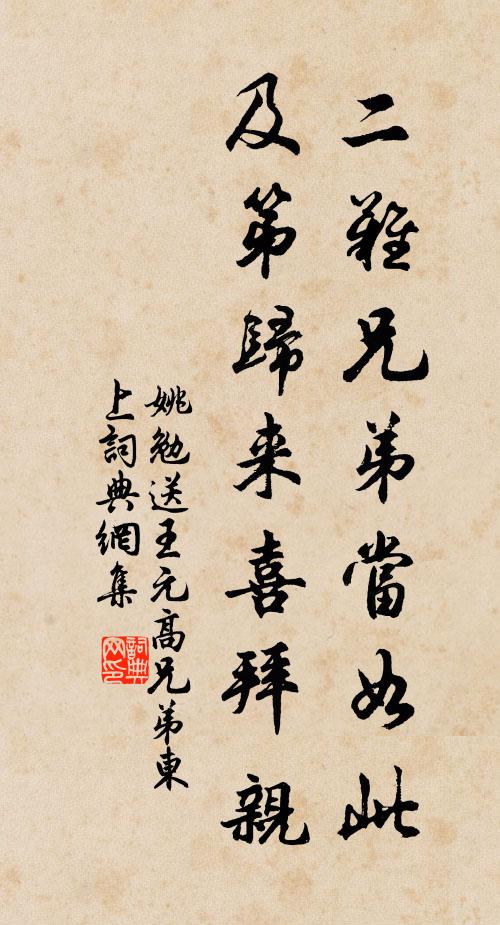 二難兄弟當如此
及第歸来喜拜親
姚勉送王元高兄弟東
上詞典網集
詞典网印